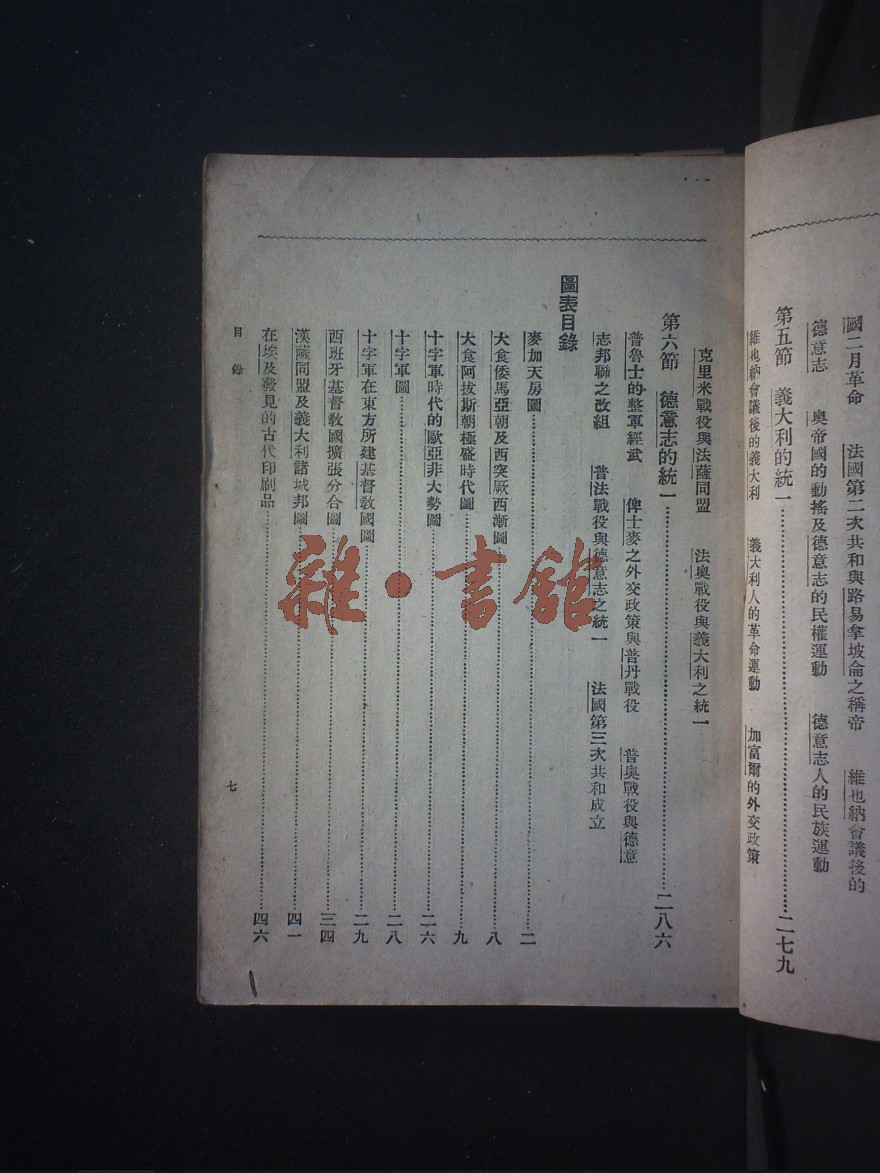 國二月革命　法國第二次共和與路易拿坡侖之稱帝　維也納會議後的
德意志　奧帝國的動搖及德意志的民權運動　德意志人的民族運動
第五節　義大利的統一⋯⋯二七九
維也納會議後的義大利　義大利人的革命運動　加富爾的外交政策
克里米戰役與法薩同盟　法奧戰役與義大利之統一
第六節　德意志的統一⋯⋯二八六
普魯士的整軍經武　俾士麥之外交政策與普丹戰役　普奧戰役與德意
志邦聯之改組　普法戰役與德意志之統一　法國第三次共和成立
圖表目錄
麥加天房圖⋯⋯二
大食倭馬亞朝及西突厥西漸圖⋯⋯八
大食阿拔斯朝極盛時代圖⋯⋯九
十字軍時代的歐亞非大勢圖⋯⋯二六
十字軍圖⋯⋯二八
十字軍在東方所建基督教國圖⋯⋯二九
西班牙基督教國擴張分合圖⋯⋯三四
漢薩同盟及義大利諸城邦圖⋯⋯四一
在埃及發見的古代印刷品⋯⋯四六
目錄
七
雜·書館